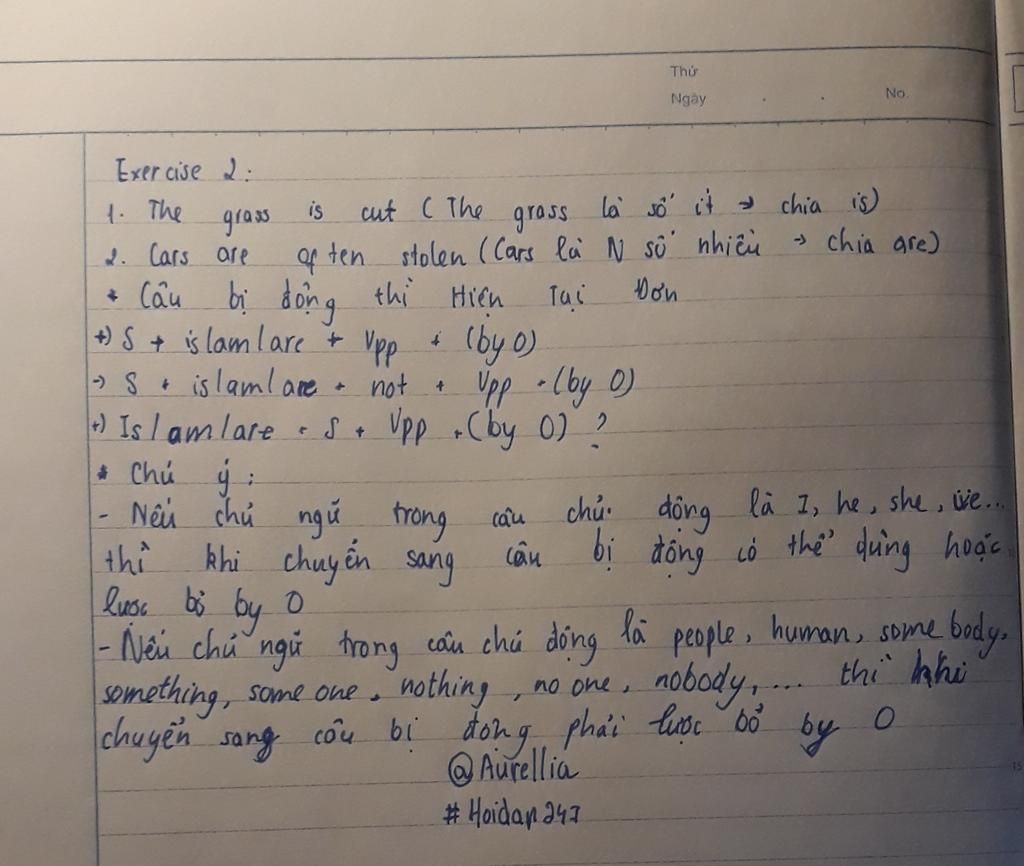 Thứ
Ngày . . No.
Exercise 2:
1. The grass is cut (The grass là số ít → chia is)
2. Cars are often stolen (Cars là N số nhiều → chia are)
* Câu bị động thì Hiện Tại Đơn
+) S + is/am/are + Vpp + (by O)
-> S + is/am/are + not + Vpp + (by O)
+) Is/am/are + S + Vpp + (by O) ?
* Chú ý :
- Nếu chủ ngữ trong câu chủ động là I, he, she, we...
thì khi chuyển sang câu bị động có thể dùng hoặc
lược bỏ by O
- Nếu chủ ngữ trong câu chủ động là people, human, somebody,
something, some one, nothing, no one, nobody,... thì khi
chuyển sang câu bị động phải lược bỏ by O
@Aurellia
#Hoidap247
15